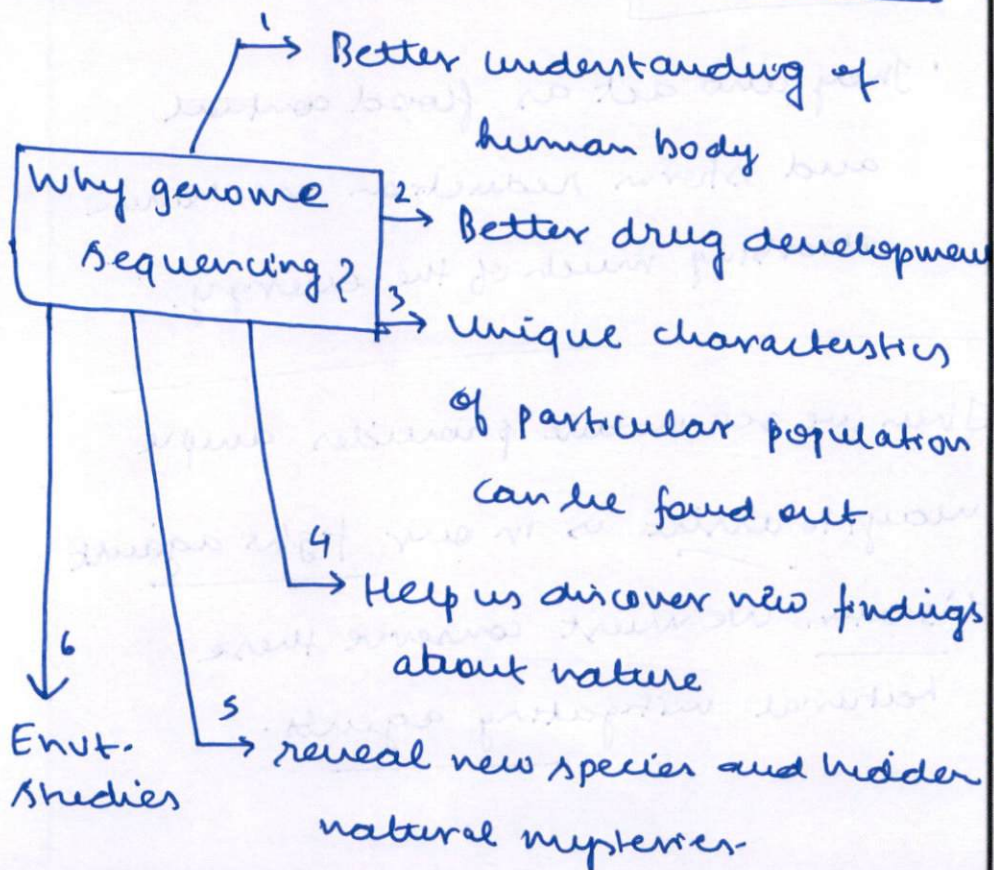 1
Better understanding of
human body
Why genome
sequencing?
2
Better drug development
3
Unique characterstics
of particular population
can be found out
4
Help us discover new findings
about nature
5
reveal new species and hidden
natural mysteries.
6
Envt.
studies